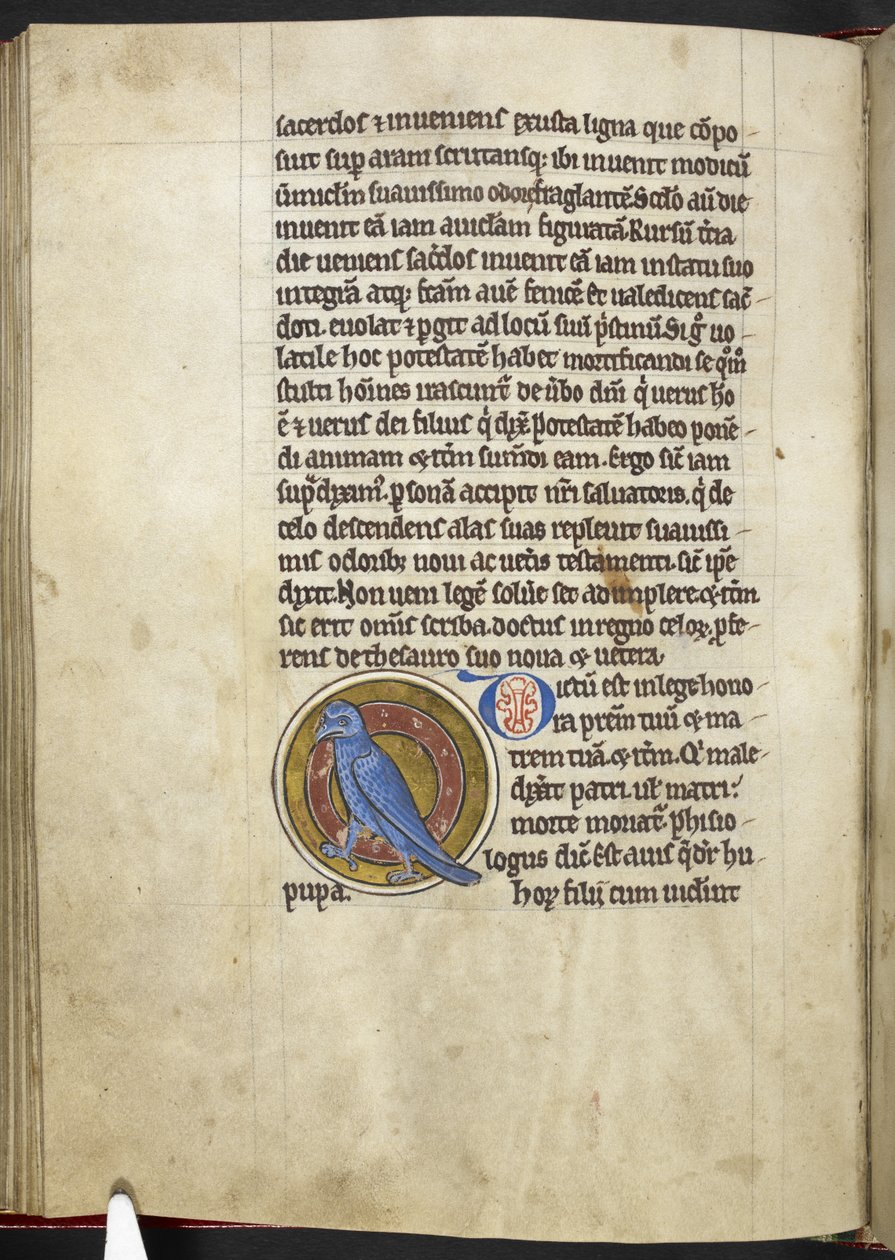 sacerdos ⁊ inueniens exusta ligna que cōpo
suit sup aram scrutansq; ibi inuenit modicū
ūmiclm̄ suauissimo odore fraglantē. Scd̄o aū die
inuenit eā iam auiclām figuratā. Rursū tͥcia
die ueniens sac̄dos inuenit eā iam in statu suo
integrā atq; fcām auē fenicē Et ualedicens sac̄
doti. euolat ⁊ pgit ad locū suū pͥstinū. Sigͦ uo
latile hoc potestatē habet mortificandi se qͦm̊
stulti hoīnes irascunt᷑ de ūbo dnī qͥ uerus hō
ē ⁊ uerus dei filius qͥ dix̄ Potestatē habeo ponē
di animam & itm̄ sumēdi eam. Ergo sic̄ iam
supᵃ dixim᷒. psonā accipit nrī saluatoris. qͥ de
celo descendens alas suas repleuit suauissi
mis odorib; noui ac uetis testamenti. sic̄ ipē
dixit. Non ueni legē solūe set adimplere. & itm̄
sic erit om̄is scriba. doctus in regno celoꝝ. ꝓfe
rens de thesauro suo noua & uetera.
Dictū est in lege hono
ra prēm tuū & ma
trem tuā. & itm̄. Qͥ male
dixit patri. ul̄ matri.
morte moriat᷑. phisio
logus dic̄. Est auis qͥ dr̄ hu
pupa. hoꝝ filij cum uidint